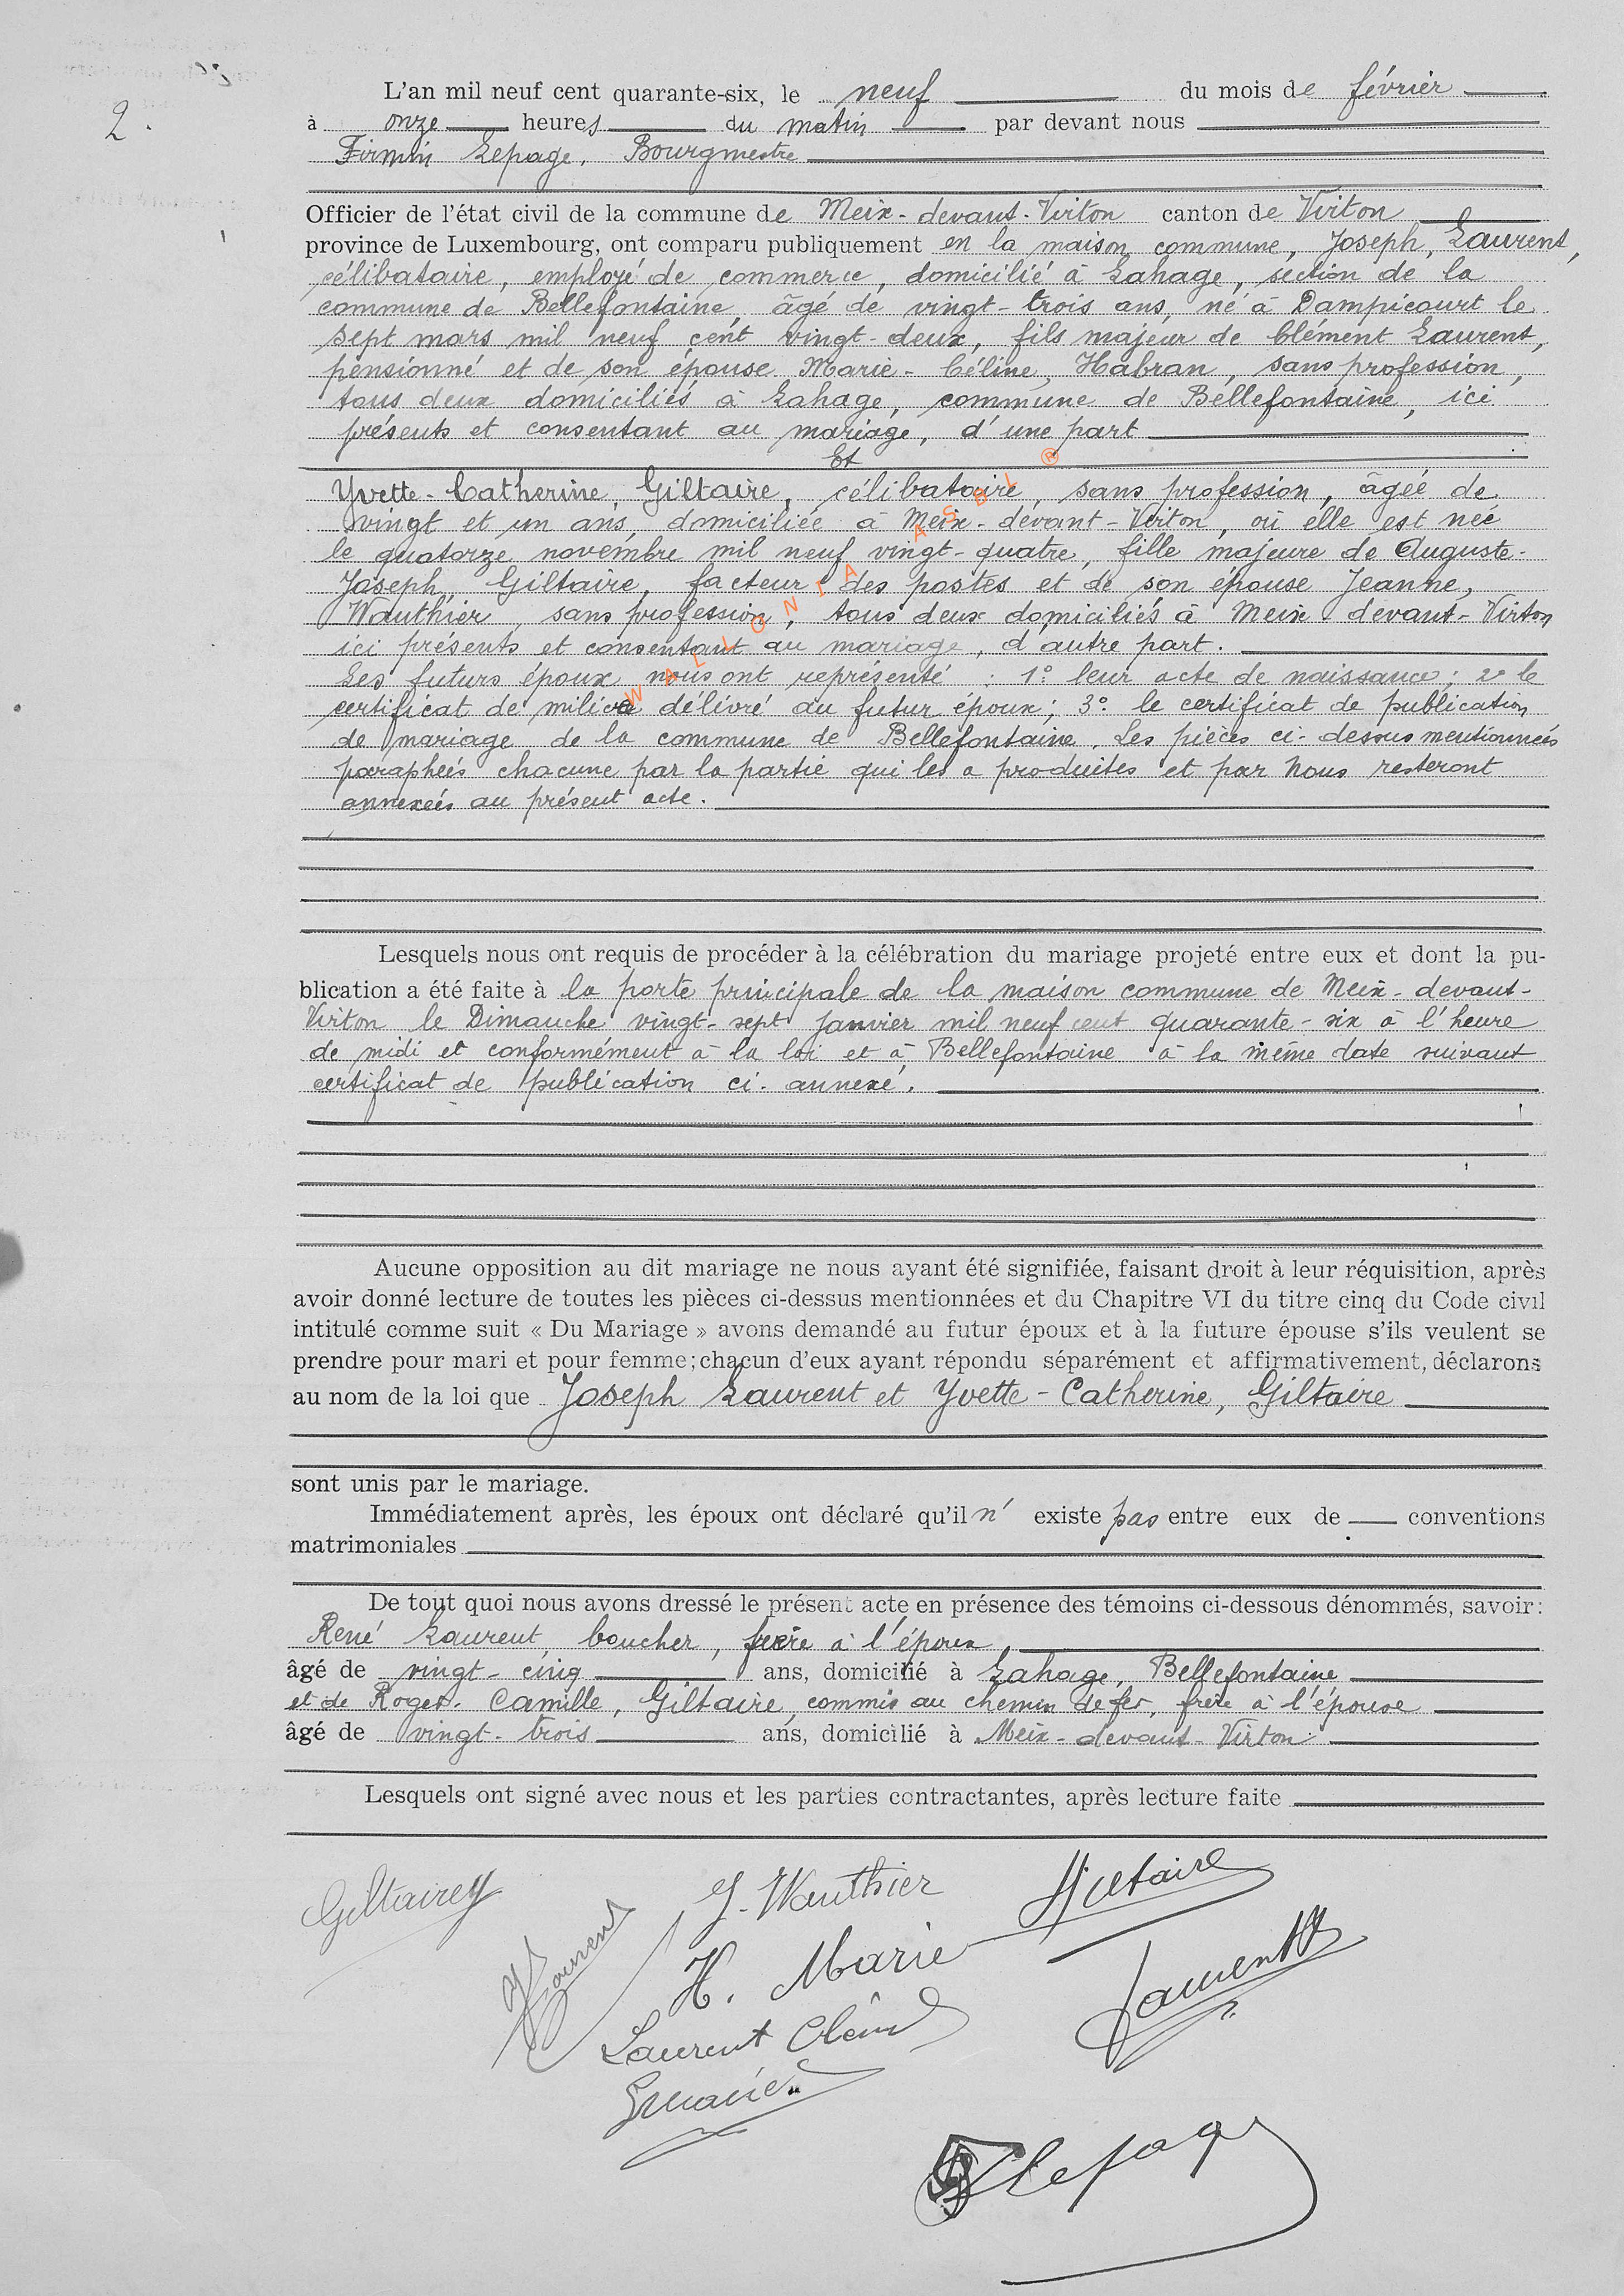 2.
L'an mil neuf cent quarante-six, le neuf du mois de février
à onze heures du matin par devant nous
Firmin Lepage, Bourgmestre
Officier de l'état civil de la commune de Meix-devant-Virton canton de Virton
province de Luxembourg, ont comparu publiquement en la maison commune, Joseph, Laurent,
célibataire, employé de commerce, domicilié à Lahage, section de la
commune de Bellefontaine, âgé de vingt-trois ans, né à Dampicourt le
sept mars mil neuf cent vingt-deux, fils majeur de Clément Laurent,
pensionné et de son épouse Marie-Céline, Habran, sans profession,
tous deux domiciliés à Lahage, commune de Bellefontaine, ici
présents et consentant au mariage, d'une part
Et
Yvette-Catherine, Giltaire, célibataire, sans profession, âgée de
vingt et un ans, domiciliée à Meix-devant-Virton, où elle est née
le quatorze novembre mil neuf vingt-quatre, fille majeure de Auguste-
Joseph, Giltaire, facteur des postes et de son épouse Jeanne,
Wauthier, sans profession, tous deux domiciliés à Meix devant-Virton
ici présents et consentant au mariage, d'autre part.
Les futurs époux nous ont représenté : 1° leur acte de naissance; 2° le
certificat de milice délivré au futur époux; 3° le certificat de publication
de mariage de la commune de Bellefontaine. Les pièces ci-dessus mentionnées
paraphées chacune par la partie qui les a produites et par Nous resteront
annexées au présent acte.
WALLONIA ASBL ®
Lesquels nous ont requis de procéder à la célébration du mariage projeté entre eux et dont la pu-
blication a été faite à la porte principale de la maison commune de Meix-devant-
Virton le Dimanche vingt-sept janvier mil neuf cent quarante-six à l'heure
de midi et conformément à la loi et à Bellefontaine à la même date suivant
certificat de publication ci-annexé.
Aucune opposition au dit mariage ne nous ayant été signifiée, faisant droit à leur réquisition, après
avoir donné lecture de toutes les pièces ci-dessus mentionnées et du Chapitre VI du titre cinq du Code civil
intitulé comme suit « Du Mariage » avons demandé au futur époux et à la future épouse s'ils veulent se
prendre pour mari et pour femme; chacun d'eux ayant répondu séparément et affirmativement, déclarons
au nom de la loi que Joseph Laurent et Yvette-Catherine, Giltaire
sont unis par le mariage.
Immédiatement après, les époux ont déclaré qu'il n' existe pas entre eux de conventions
matrimoniales
De tout quoi nous avons dressé le présent acte en présence des témoins ci-dessous dénommés, savoir:
René Laurent, boucher, frère à l'époux,
âgé de vingt-cinq ans, domicilié à Lahage, Bellefontaine
et de Roger-Camille, Giltaire, commis au chemin de fer, frère à l'épouse
âgé de vingt-trois ans, domicilié à Meix-devant-Virton
Lesquels ont signé avec nous et les parties contractantes, après lecture faite
Giltairey
J. Wauthier
Giltaire
Laurent
H. Marie
Laurent
Laurent Clém
Lepage